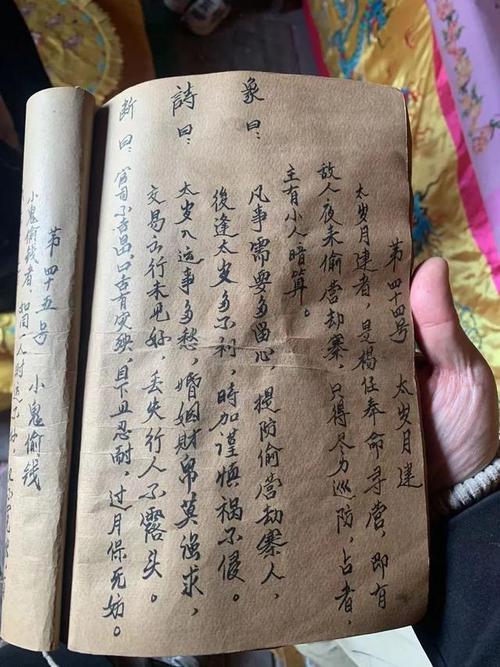 第四十四号 太岁月建
太岁月建者，是杨任奉命寻营，即有
敌人夜来偷营劫寨，只得尽力巡防，占者，
主有小人暗算。
象曰：
凡事需要多留心，提防偷营劫寨人，
後逢太岁多不利，時加谨慎祸不侵。
詩曰：
太岁入运事多愁，婚姻财帛莫强求，
交易出行未见好，丢失行人不露头。
断曰：
官司不吉出，口舌有灾殃，目下且忍耐，过月保无妨。
第四十五号 小鬼偷钱
小鬼偷钱者，如同一人时运不